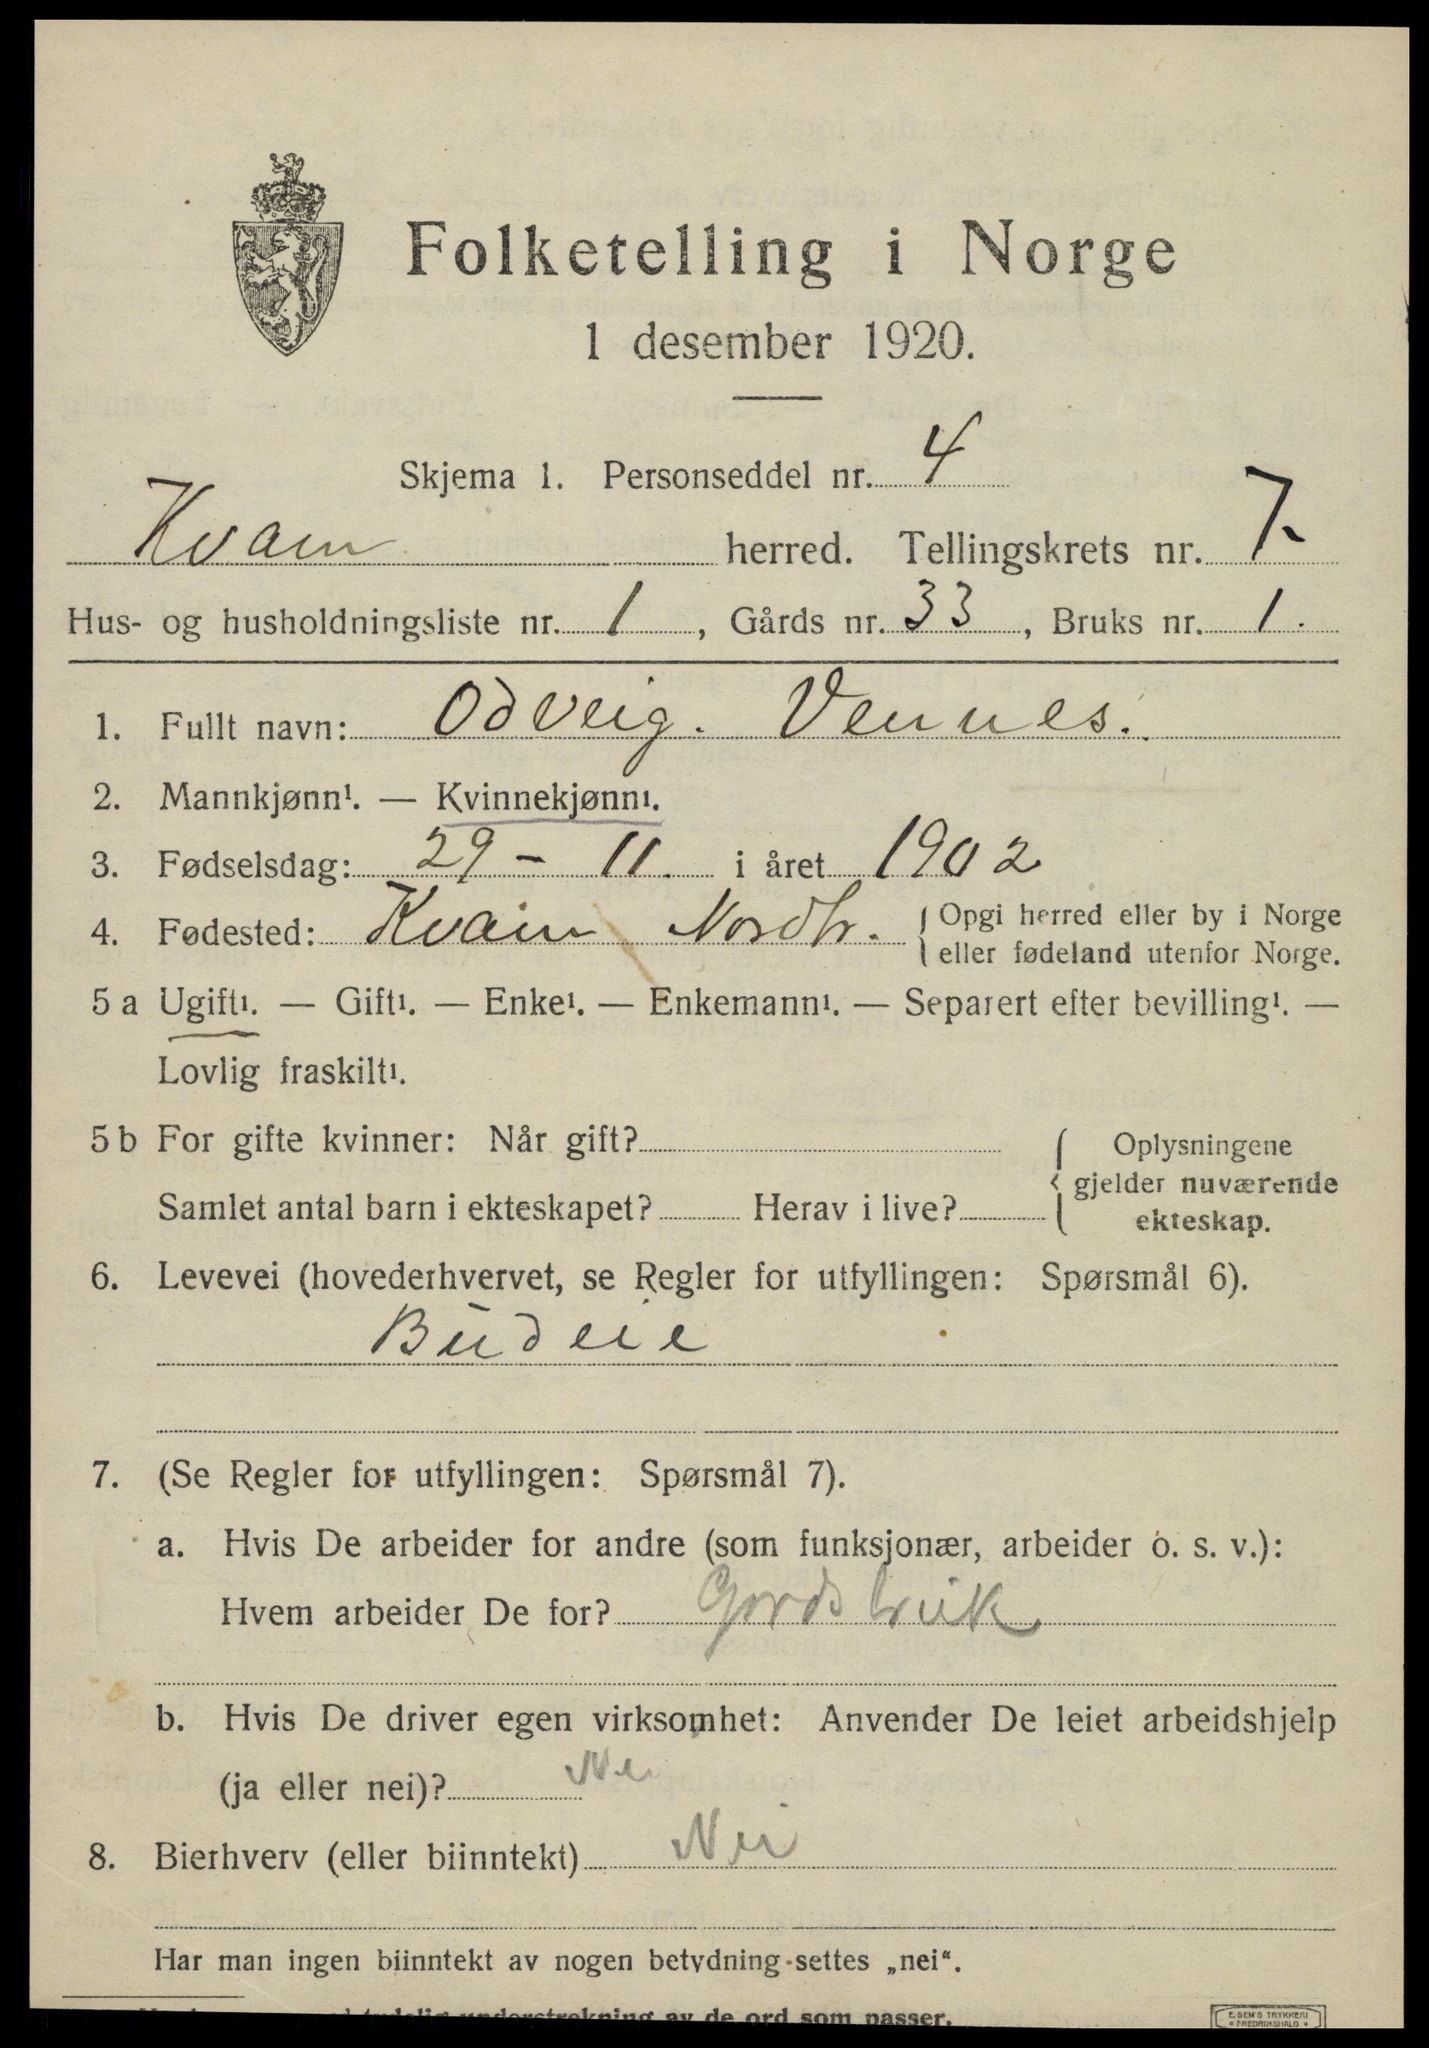 Folketelling i Norge
1 desember 1920.
Skjema 1. Personseddel nr. 4
Kvam herred. Tellingskrets nr. 7.
Hus- og husholdningsliste nr. 1, Gårds nr. 33, Bruks nr. 1.
1. Fullt navn: Odveig. Vennes.
2. Mannkjønn¹. — Kvinnekjønn¹.
3. Fødselsdag: 29 - 11. i året 1902
4. Fødested: Kvam Nordtr. {Opgi herred eller by i Norge
eller fødeland utenfor Norge.
5 a Ugift¹. — Gift¹. — Enke¹. — Enkemann¹. — Separert efter bevilling¹. —
Lovlig fraskilt¹.
5 b For gifte kvinner: Når gift? { Oplysningene
gjelder nuværende
Samlet antal barn i ekteskapet? Herav i live? ekteskap.
6. Levevei (hovederhvervet, se Regler for utfyllingen: Spørsmål 6).
Budeie
7. (Se Regler for utfyllingen: Spørsmål 7).
a. Hvis De arbeider for andre (som funksjonær, arbeider o. s. v.):
Hvem arbeider De for? Gordsbruk
b. Hvis De driver egen virksomhet: Anvender De leiet arbeidshjelp
(ja eller nei)? Nei
8. Bierhverv (eller biinntekt) Nei
Har man ingen biinntekt av nogen betydning settes „nei“.
understrekning av de ord som passer.
E. SEM'S TRYKKERI
* FREDRIKSHALD *